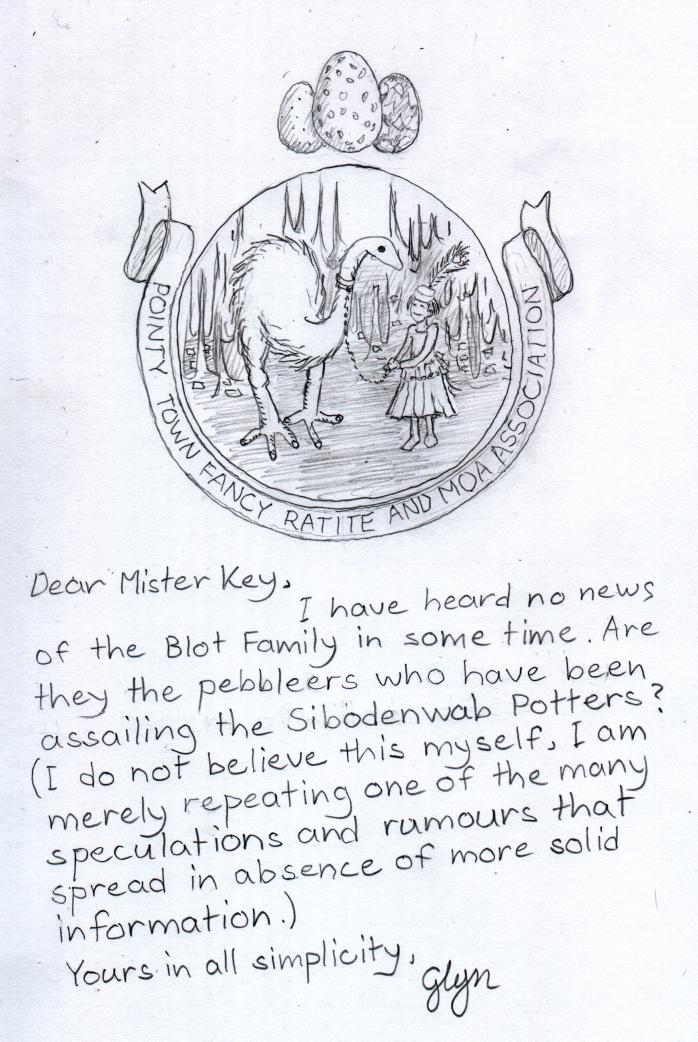 POINTY TOWN FANCY RATITE AND MOA ASSOCIATION
Dear Mister Key,
I have heard no news
of the Blot Family in some time. Are
they the pebbleers who have been
assailing the Sibodenwab Potters?
(I do not believe this myself, I am
merely repeating one of the many
speculations and rumours that
spread in absence of more solid
information.)
Yours in all simplicity,
Glyn